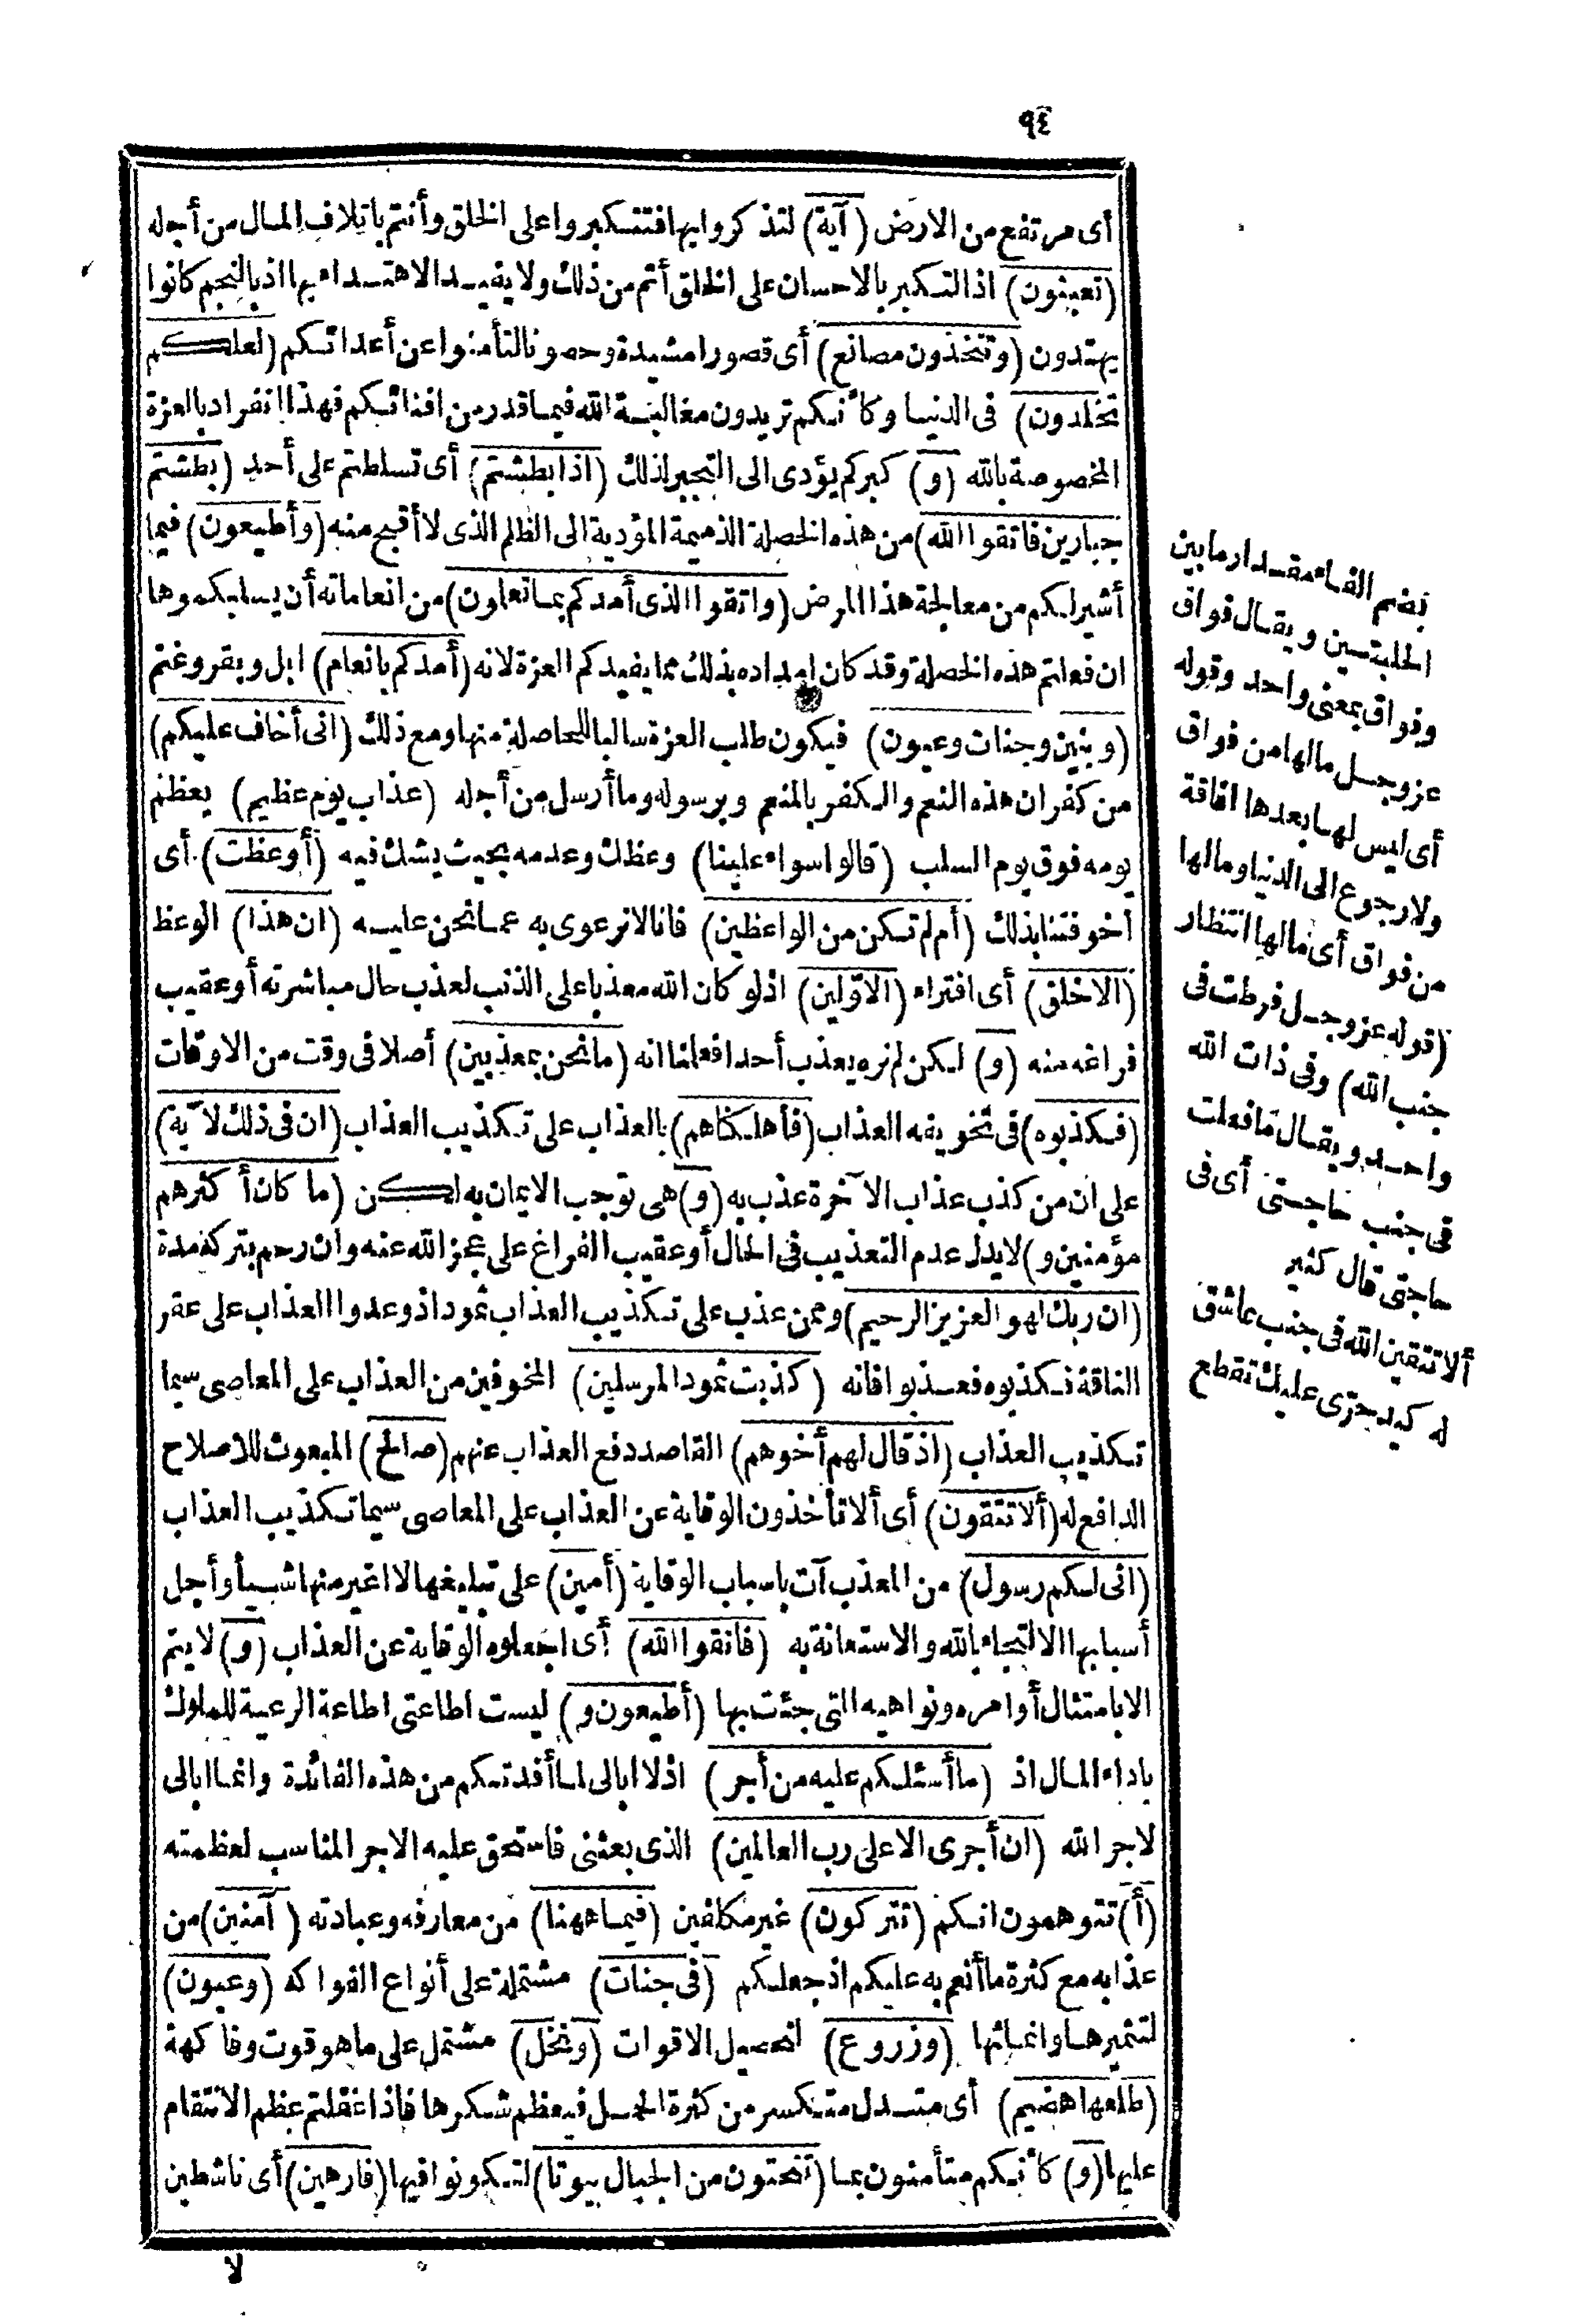 ٩٤
أى مرتفع من الارض (آية) لتذكروا بها فتتكبروا على الخلق وأنتم باتلاف المال من أجله
(تعبثون) اذ التكبر بالاحسان على الخلق أتم من ذلك ولا يفيد الاهتداء بها اذ بالنجم كانوا
يهتدون (وتتخذون مصانع) أى قصورا مشيدة وحصونا لتأمنوا عن أعدائكم (لعلكم
تخلدون) فى الدنيا وكأنكم تريدون مغالبة الله فيما قدر من افنائكم فهذا انفراد بالعزة
المخصوصة بالله (و) كبركم يؤدى الى التجبر لذلك (اذا بطشتم) أى تسلطتم على أحد (بطشتم
جبارين فاتقوا الله) من هذه الخصلة الذميمة المؤدية الى الظلم الذى لا أقبح منه (وأطيعون) فيما
أشير لكم من معالجة هذا المرض (واتقوا الذى أمدكم بما تعلمون) من انعاماته أن يسلبكموها
ان فعلتم هذه الخصلة وقد كان امداده بذلك مما يفيدكم العزة لانه (أمدكم بانعام) ابل وبقر وغنم
(وبنين وجنات وعيون) فيكون طلب العزة سالبا للحاصلة منها ومع ذلك (انى أخاف عليكم)
من كفران هذه النعم والكفر بالمنعم وبرسوله وما أرسل من أجله (عذاب يوم عظيم) يعظم
يومه فوق يوم السلب (قالوا سواء علينا) وعظك وعدمه بحيث يشك فيه (أوعظت) أى
أخوفتنا بذلك (أم لم تكن من الواعظين) فانا لا نرعوى به عما نحن عليه (ان هذا) الوعظ
(الا خلق) أى افتراء (الاولين) اذ لو كان الله معذبا على الذنب لعذب حال مباشرته أو عقيب
فراغه منه (و) لكن لم نره يعذب أحدا فعلمنا انه (ما نحن بمعذبين) أصلا فى وقت من الاوقات
(فكذبوه) فى تخويفه العذاب (فأهلكناهم) بالعذاب على تكذيب العذاب (ان فى ذلك لآية)
على ان من كذب عذاب الآخرة عذب به (و) هى توجب الايمان به لكن (ما كان أكثرهم
مؤمنين و) لا يدل عدم التعذيب فى الحال أو عقيب الفراغ على عجز الله عنه وان رحم بتركه مدة
(ان ربك لهو العزيز الرحيم) وممن عذب على تكذيب العذاب ثمود اذ وعدوا العذاب على عقر
الناقة فكذبوه فعذبوا فانه (كذبت ثمود المرسلين) المخوفين من العذاب على المعاصى سيما
تكذيب العذاب (اذ قال لهم أخوهم) القاصد دفع العذاب عنهم (صالح) المبعوث للاصلاح
الدافع له (ألا تتقون) أى ألا تأخذون الوقاية عن العذاب على المعاصى سيما تكذيب العذاب
(انى لكم رسول) من المعذب آت باسباب الوقاية (أمين) على تبليغها لا اغير منها شيأ وأجل
أسبابها الالتجاء بالله والاستعانة به (فاتقوا الله) أى اجعلوه الوقاية عن العذاب (و) لا يتم
الا بامتثال أوامره ونواهيه التى جئت بها (أطيعون و) ليست اطاعتى اطاعة الرعية للملوك
باداء المال اذ (ما أسئلكم عليه من أجر) اذ لا ابالى لما أفدتكم من هذه الفائدة وانما ابالى
لاجر الله (ان أجرى الا على رب العالمين) الذى بعثنى فاستحق عليه الاجر المناسب لعظمته
(أ) تتوهمون انكم (تتركون) غير مكلفين (فيما ههنا) من معارفه وعبادته (آمنين) من
عذابه مع كثرة ما أنعم به عليكم اذ جعلكم (فى جنات) مشتملة على أنواع الفواكه (وعيون)
لتثميرها وانمائها (وزروع) لتحصيل الاقوات (ونخل) مشتمل على ما هو قوت وفاكهة
(طلعها هضيم) أى متدل متكسر من كثرة الحمل فيعظم شكرها فاذا غفلتم عظم الانتقام
عليها (و) كأنكم متأمنون بما (تنحتون من الجبال بيوتا) لتكونوا فيها (فارهين) أى ناشطين
لا
بضم الفاء مقدار ما بين
الحلبتين ويقال فواق
وفواق بمعنى واحد وقوله
عز وجل ما لها من فواق
أى ليس لها بعدها افاقة
ولا رجوع الى الدنيا وما لها
من فواق أى ما لها انتظار
(قوله عز وجل فرطت فى
جنب الله) وفى ذات الله
واحد ويقال ما فعلت
فى جنب حاجتى أى فى
حاجتى قال كثير
ألا تتقين الله فى جنب عاشق
له كبد حرى عليك تقطع